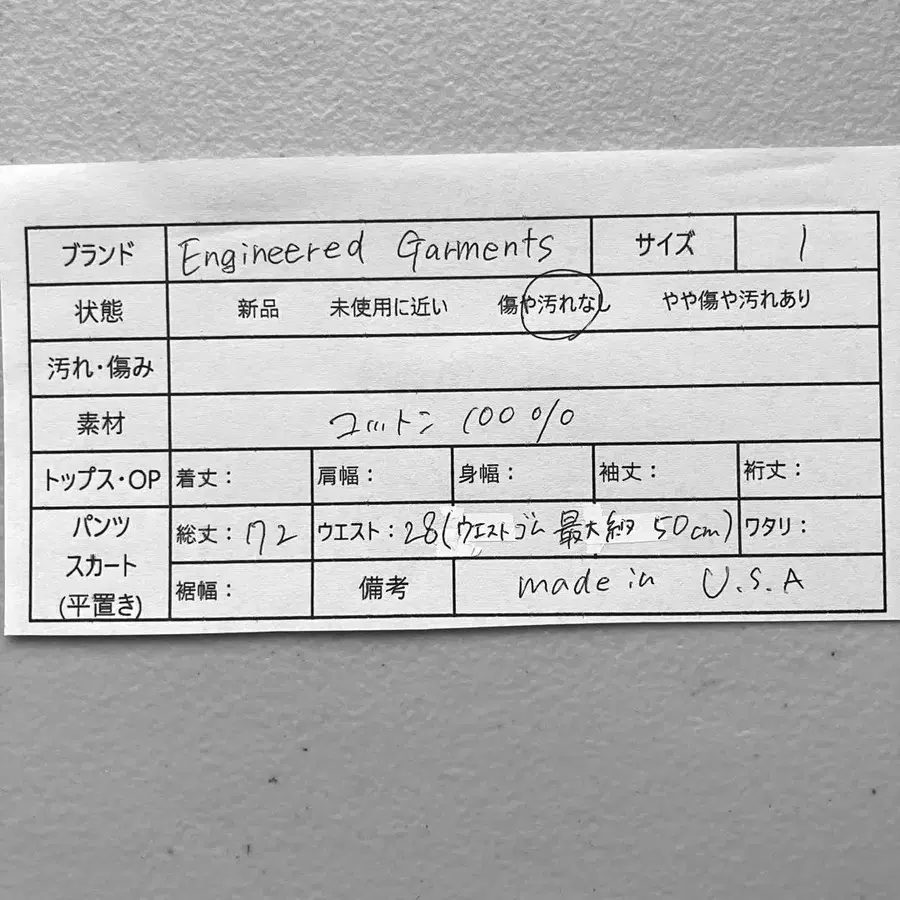 ブランド Engineered Garments サイズ 1
状態 新品 未使用に近い 傷や汚れなし やや傷や汚れあり
汚れ・傷み
素材 コットン 100%
トップス・OP 着丈： 肩幅： 身幅： 袖丈： 裄丈：
パンツ スカート (平置き) 総丈：72 ウエスト：28(ウエストゴム 最大約 50cm) ワタリ：
裾幅： 備考 made in U.S.A